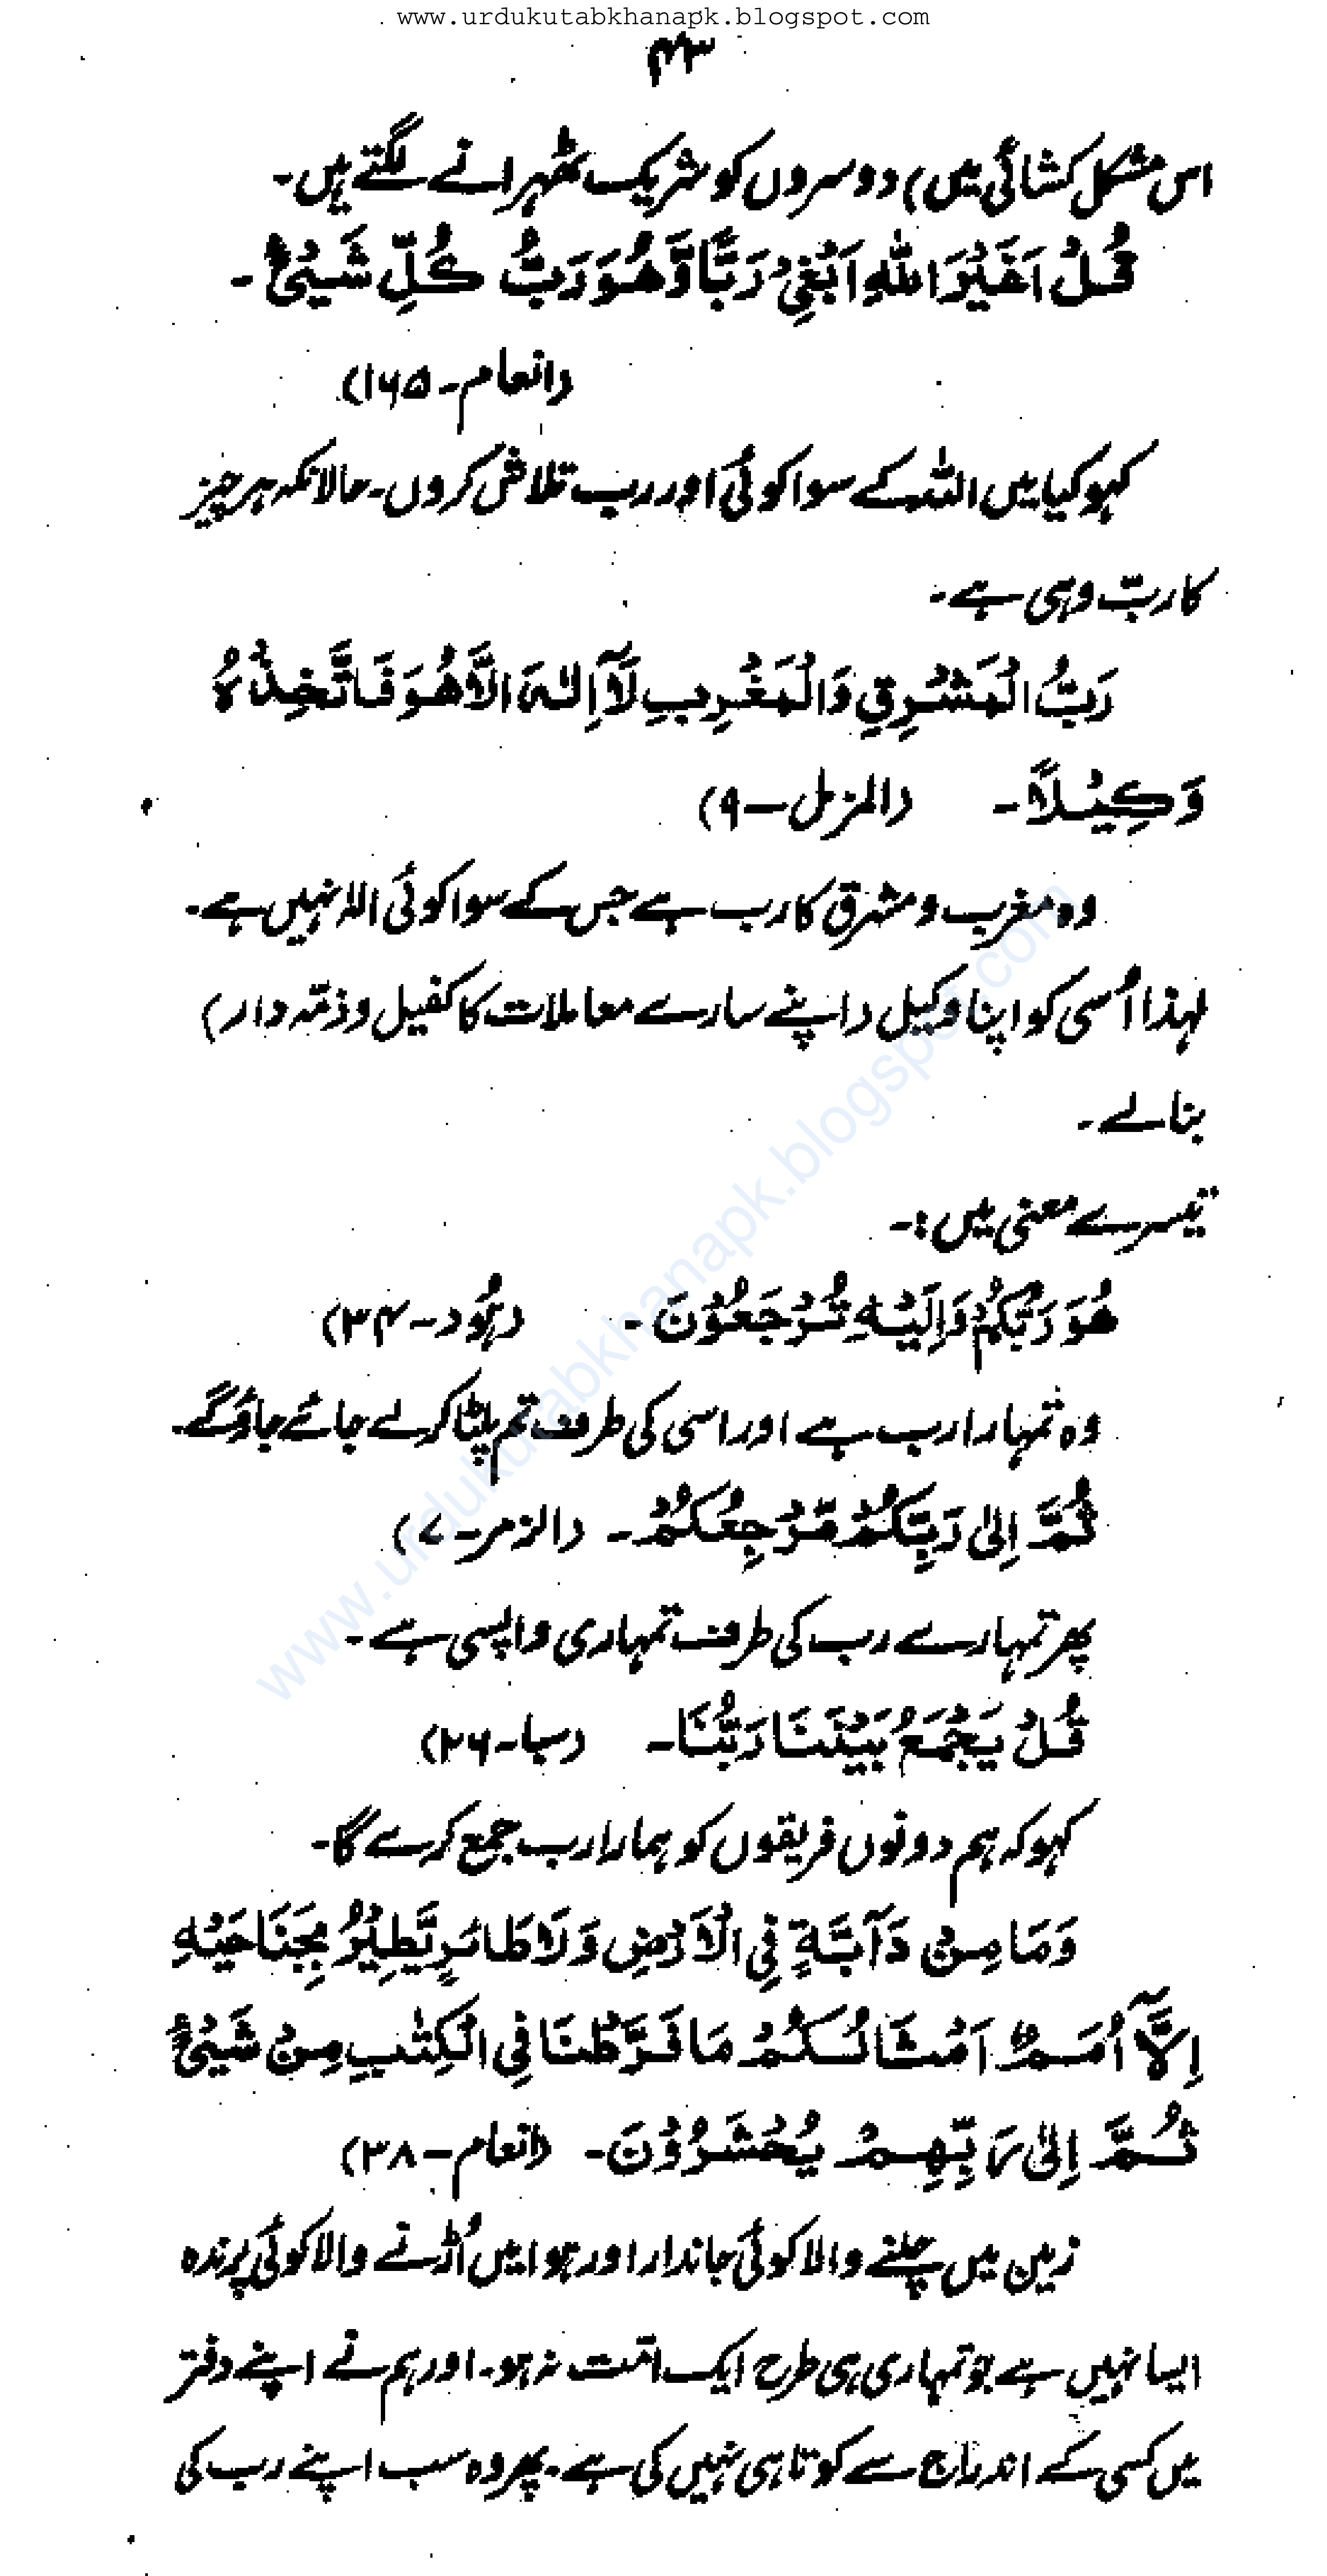 www.urdukutabkhanapk.blogspot.com
۴۳
اس مشکل کشائی میں) دوسروں کو شریک ٹھہرانے لگتے ہیں۔
قُلْ اَغَيْرَ اللّٰهِ اَبْغِيْ رَبًّا وَّهُوَ رَبُّ كُلِّ شَيْئٍ۔
(انعام۔۱۶۵)
کہو کیا میں اللہ کے سوا کوئی اور رب تلاش کروں۔ حالانکہ ہر چیز
کا ربّ وہی ہے۔
رَبُّ الْمَشْرِقِ وَالْمَغْرِبِ لَآ اِلٰهَ اِلَّا هُوَ فَاتَّخِذْهُ
وَكِيْلًا۔ (المزمل—۹)
وہ مغرب و مشرق کا رب ہے جس کے سوا کوئی الٰہ نہیں ہے۔
لہٰذا اُسی کو اپنا وکیل (اپنے سارے معاملات کا کفیل و ذمّہ دار)
بنالے۔
تیسرے معنی میں:۔
هُوَ رَبُّكُمْ وَاِلَيْهِ تُرْجَعُوْنَ۔ (ہُود۔۳۴)
وہ تمہارا رب ہے اور اسی کی طرف تم پلٹا کر لے جائے جاؤگے۔
ثُمَّ اِلٰى رَبِّكُمْ مَّرْجِعُكُمْ۔ (الزمر۔۷)
پھر تمہارے رب کی طرف تمہاری واپسی ہے۔
قُلْ يَجْمَعُ بَيْنَنَا رَبُّنَا۔ (سبا۔۲۶)
کہو کہ ہم دونوں فریقوں کو ہمارا رب جمع کرے گا۔
وَمَا مِنْ دَآبَّةٍ فِي الْاَرْضِ وَلَا طَائِرٍ يَّطِيْرُ بِجَنَاحَيْهِ
اِلَّآ اُمَمٌ اَمْثَالُكُمْ مَا فَرَّطْنَا فِي الْكِتٰبِ مِنْ شَيْئٍ
ثُمَّ اِلٰى رَبِّهِمْ يُحْشَرُوْنَ۔ (انعام—۳۸)
زمین میں چلنے والا کوئی جاندار اور ہوا میں اُڑنے والا کوئی پرندہ
ایسا نہیں ہے جو تمہاری ہی طرح ایک امّت نہ ہو۔ اور ہم نے اپنے دفتر
میں کسی کے اندراج سے کوتاہی نہیں کی ہے۔ پھر وہ سب اپنے رب کی
www.urdukutabkhanapk.blogspot.com